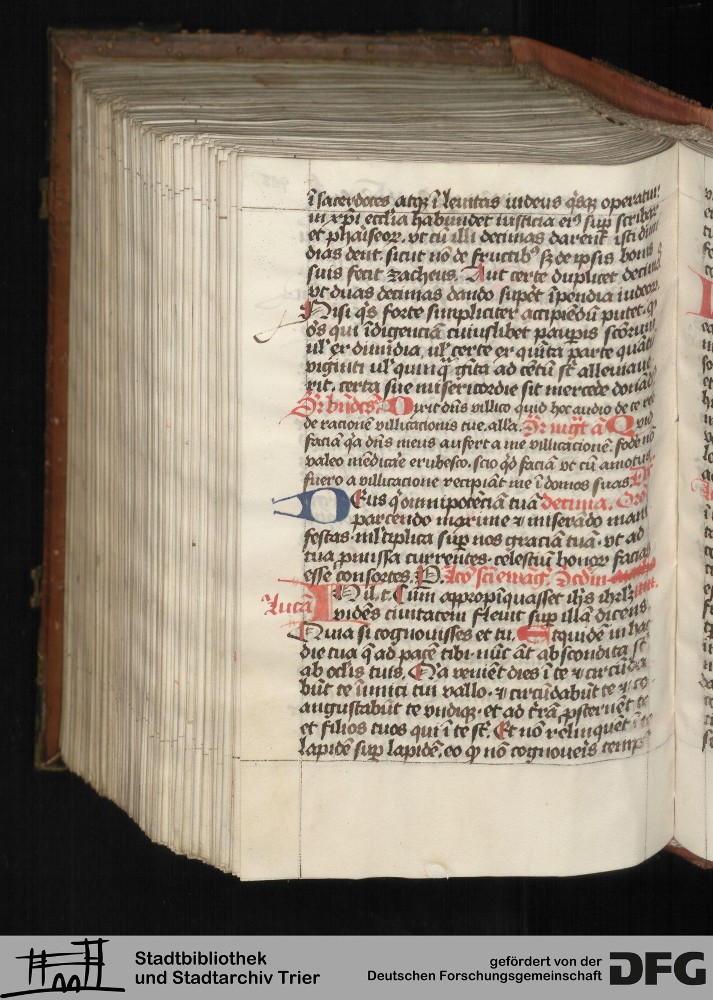 ī sacerdotes atqꝫ ī leuitas iudeus qͥsqꝫ operatur
in xp̄i ecc̄lia habundet iusticia eiꝰ suꝑ scribaꝝ
et pharͥseoꝝ. vt cū illi decimas darent isti dimi
dias dent. sicut nō de fructibꝫ sꝫ de ipsis bonis
suis fecit zacheus. Aut certe duplicet decimā
vt duas decimas dando supēt īpendia iudeoꝝ
Nisi qͥs forte simpliciter accipiēdū putet. ꝙ
os qui īdigenciā cuiuslibet pauꝑis scōrum
ul' ex dimidia. ul' certe ex quīta parte quāti
viginti ul' quinqꝫ gīta ad cētū st̄ alleuiaue
rit. certa sue misericordie sit mercede donād
Sr̄ bn̄dcs. Dixit dn̄s villico quid hoc audio de te red
de racionē villicacionis tue. alla. Sr̄ mg̅t añ Quid
faciā qͥa dn̄s meus aufert a me villicacionē. fode nō
valeo mēdicare erubesco. scio qͥd faciā vt cū amotus
fuero a villicatione recipiāt me ī domos suas.
DEus qͥ omipotēciā tuā decima. Oro
parcendo maxime ⁊ miserādo mani
festas. ml'tiplica suꝑ nos graciā tuā. vt ad
tua ꝓmissa currentes. celestiū bonoꝝ facias
esse consortes. P. Lcō sc̄i ewāg. scdm
Luca IN il. t. Cum appropīquasset ihs ihrlm
videns ciuitatem fleuit suꝑ illā dicens.
Quia si cognouisses et tu. Et quidē in hac
die tua q̄ ad pacē tibi. nūc āt abscondita st̄
ab oclis tuis. Qͥa veniēt dies ī te ⁊ circūda
būt te īimici tui vallo. ⁊ circūdabūt te ⁊ co
angustabūt te vndiqꝫ. et ad tͥrā ꝓsternēt te
et filios tuos qui ī te st̄. Et nō relinquēt ī te
lapidē suꝑ lapidē. eo ꝙ nō cognoueris temp̄
Stadtbibliothek
und Stadtarchiv Trier
gefördert von der
Deutschen Forschungsgemeinschaft
DFG